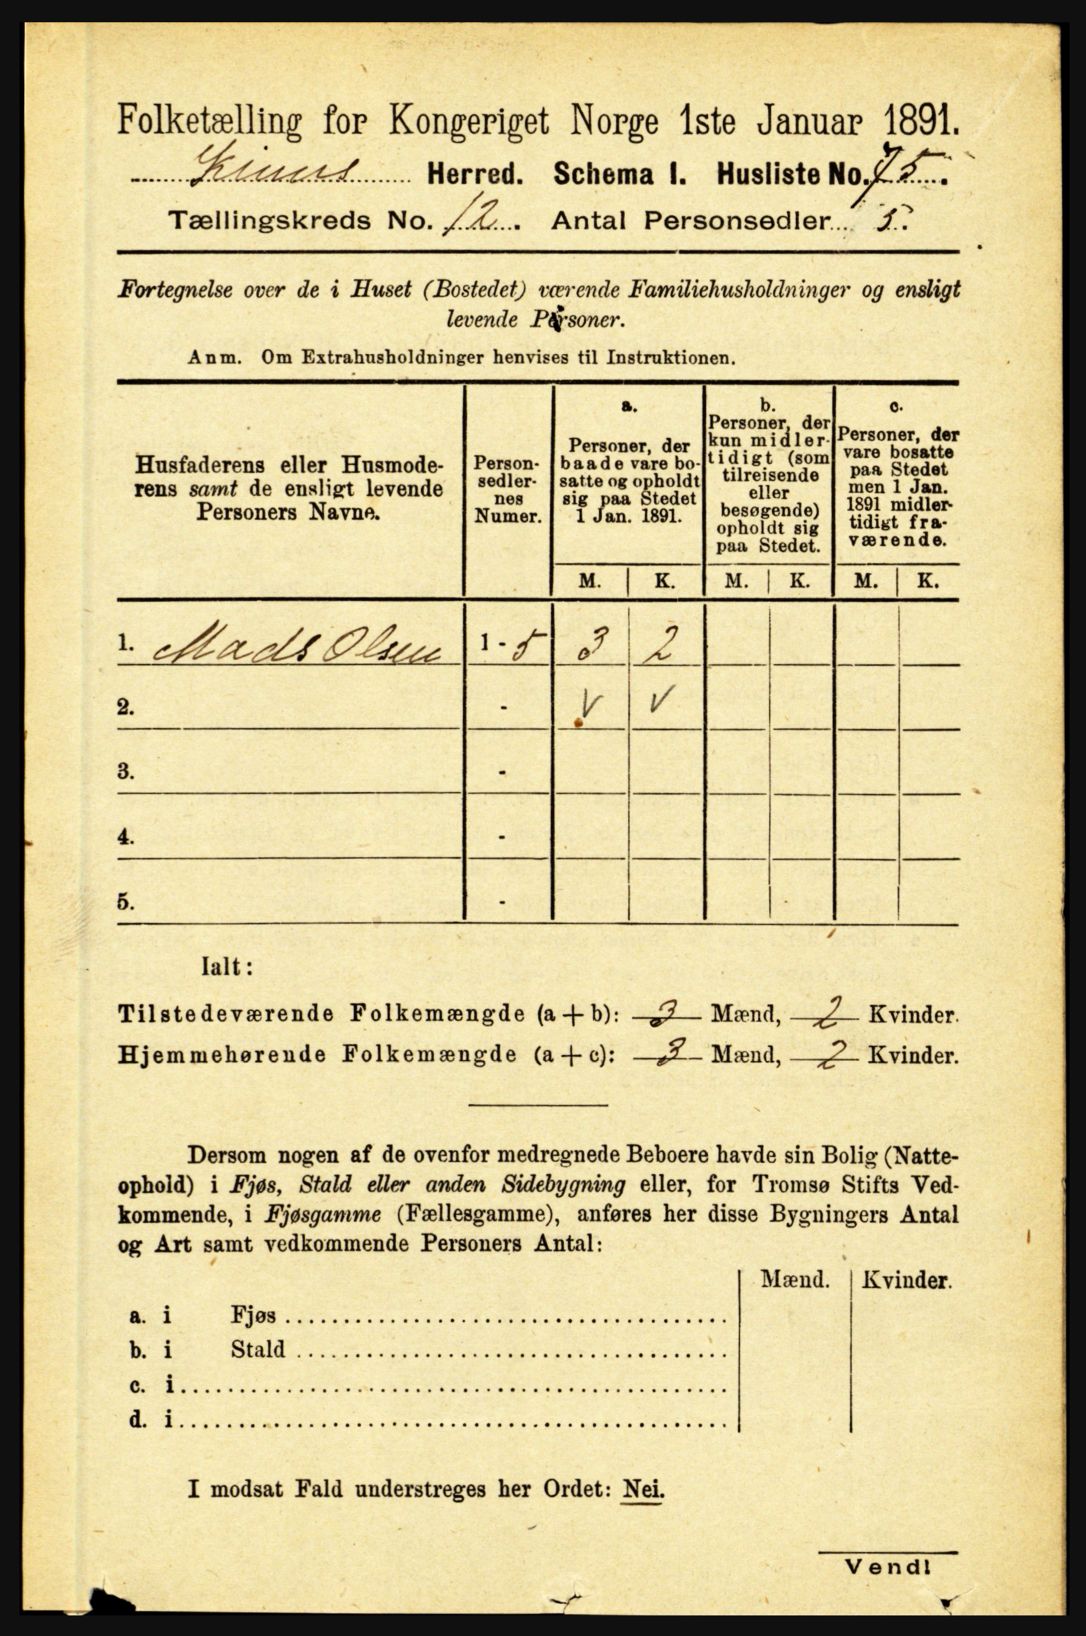 Folketælling for Kongeriget Norge 1ste Januar 1891.
Kinns Herred. Schema I. Husliste No. 75.
Tællingskreds No. 12. Antal Personsedler 5.
Fortegnelse over de i Huset (Bostedet) værende Familiehusholdninger og ensligt
levende Personer.
Anm. Om Extrahusholdninger henvises til Instruktionen.
Husfaderens eller Husmode-
rens samt de ensligt levende
Personers Navne.
Person-
sedler-
nes
Numer.
a.
Personer, der
baade vare bo-
satte og opholdt
sig paa Stedet
1 Jan. 1891.
b.
Personer, der
kun midler-
tidigt (som
tilreisende
eller
besøgende)
opholdt sig
paa Stedet.
c.
Personer, der
vare bosatte
paa Stedet
men 1 Jan.
1891 midler-
tidigt fra-
værende.
M. K. M. K. M. K.
1. Mads Olsen 1 - 5 3 2
2. - V V
3. -
4. -
5. -
Ialt:
Tilstedeværende Folkemængde (a + b): 3 Mænd, 2 Kvinder.
Hjemmehørende Folkemængde (a + c): 3 Mænd, 2 Kvinder.
Dersom nogen af de ovenfor medregnede Beboere havde sin Bolig (Natte-
ophold) i Fjøs, Stald eller anden Sidebygning eller, for Tromsø Stifts Ved-
kommende, i Fjøsgamme (Fællesgamme), anføres her disse Bygningers Antal
og Art samt vedkommende Personers Antal:
Mænd. Kvinder.
a. i Fjøs
b. i Stald
c. i
d. i
I modsat Fald understreges her Ordet: Nei.
Vend!